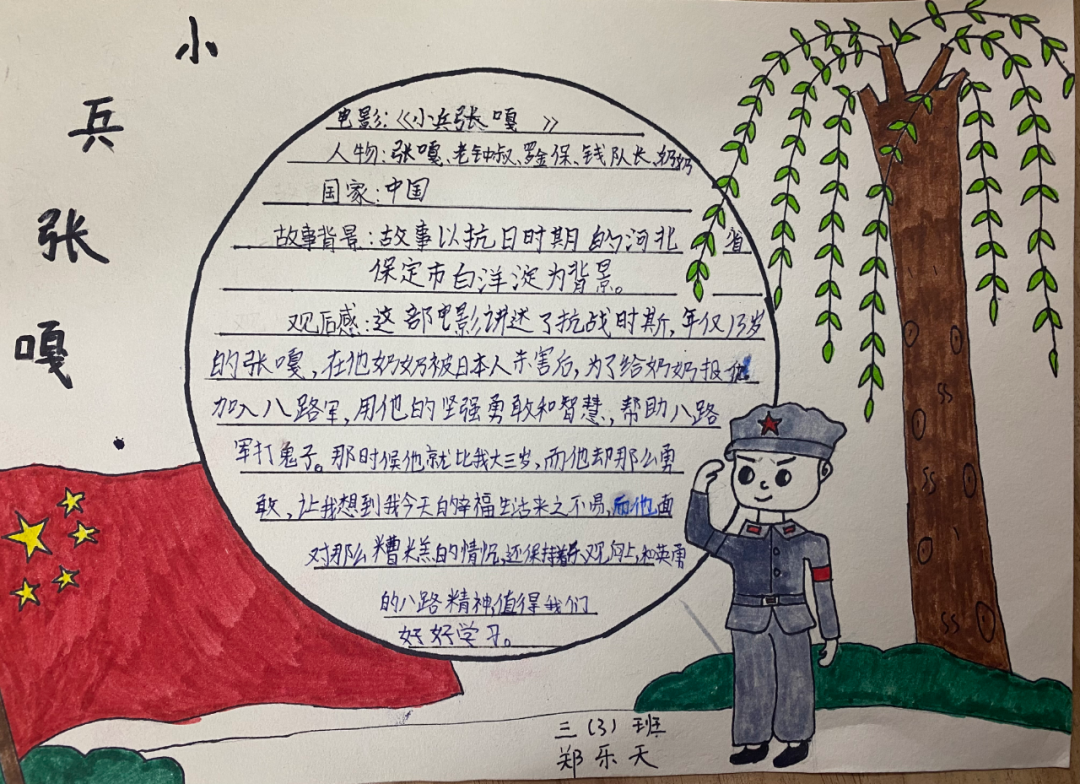 小兵张嘎
电影：《小兵张嘎 》
人物：张嘎、老钟叔、罗金保、钱队长、奶奶
国家：中国
故事背景：故事以抗日时期的河北 省
保定市白洋淀为背景。
观后感：这部电影讲述了抗战时期，年仅13岁
的张嘎，在他奶奶被日本人杀害后，为了给奶奶报
加入八路军，用他的坚强勇敢和智慧，帮助八路
军打鬼子。那时候他就比我大三岁，而他却那么勇
敢，让我想到我今天的幸福生活来之不易，而他面
对那么糟糕的情况，还保持着乐观向上，和英勇
的八路精神值得我们
好好学习。
三（3）班
郑乐天